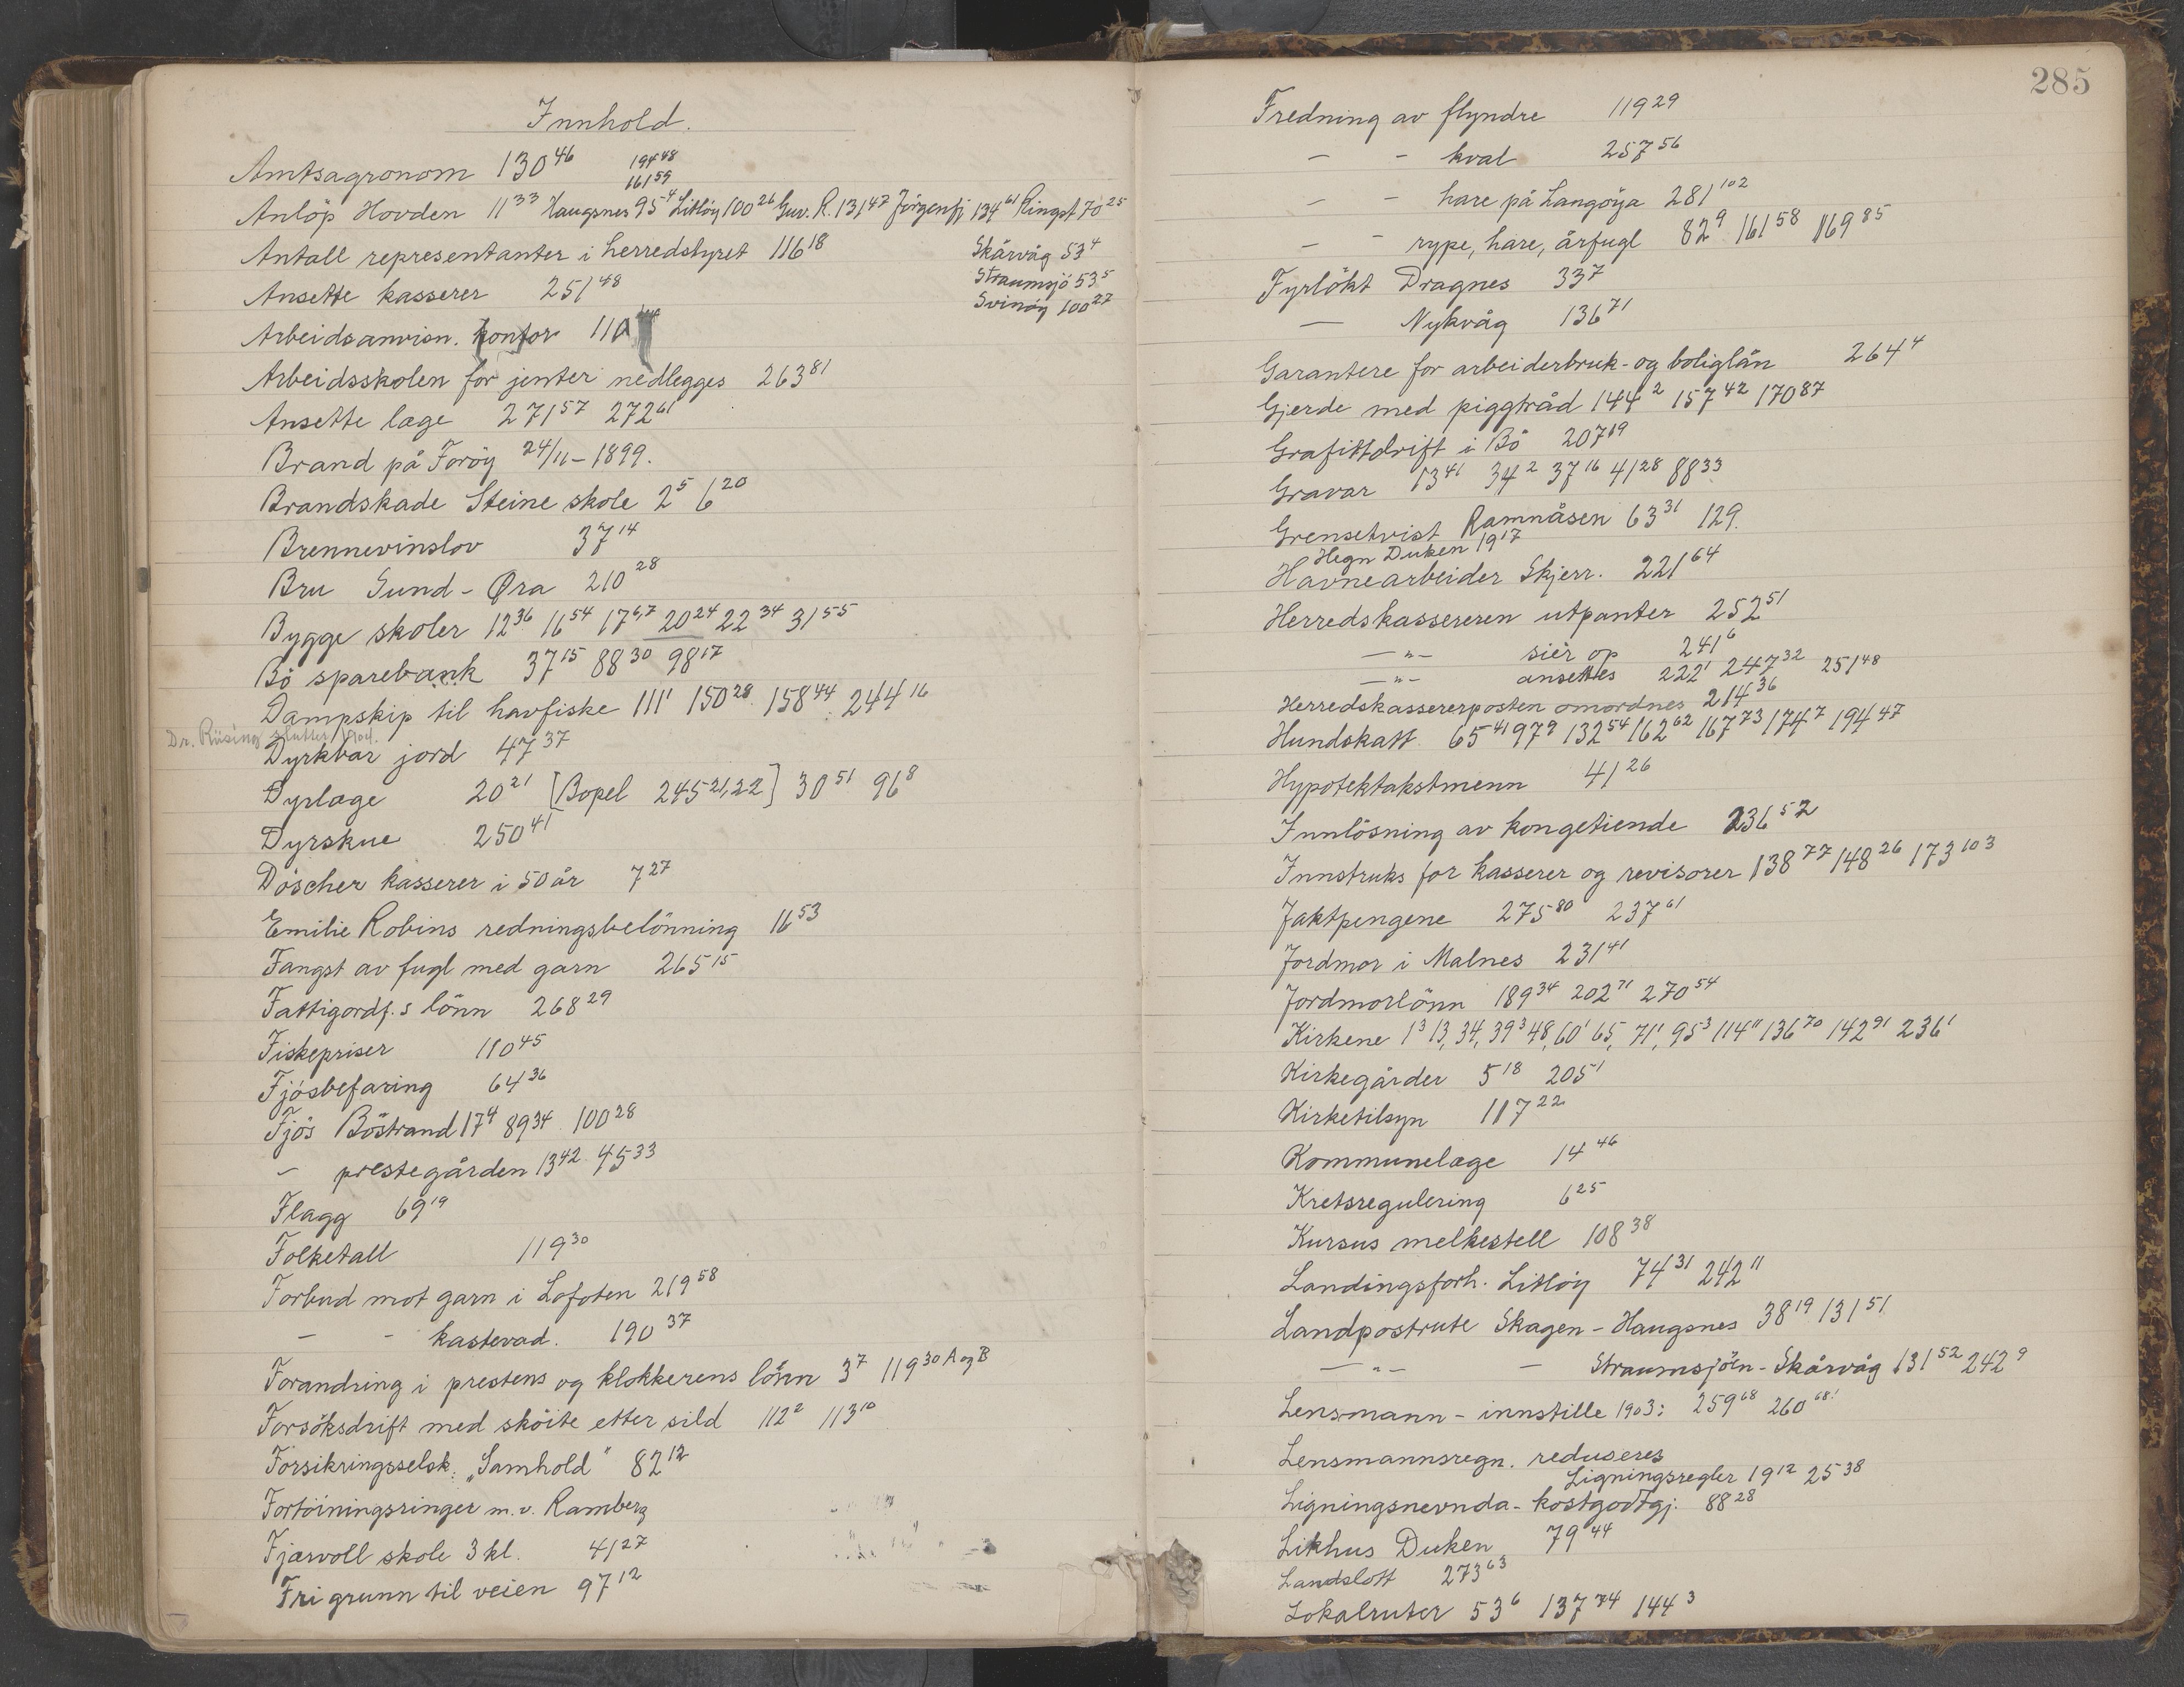 Innhold.
Amtsagronom 130⁴⁶ 194⁴⁸
161⁵⁹
Anlöp Hovden 11³³ Haugsnes 95⁴ Litlöy 100²⁶ Guv. R. 131⁴⁷ Jörgenfj 134⁶¹ Ringst 70²⁵
Antall representanter i herredstyret 116¹⁸ Skårvåg 53⁴
Ansette kasserer 251⁴⁸ Straumsjö 53⁵
Svinöy 100²⁷
Arbeidsanvisn. kontor 110
Arbeidsskolen for jenter nedlegges 263⁸¹
Ansette læge 271⁵⁷ 272⁶¹
Brand på Foröy 24/11 – 1899.
Brandskade Steine skole 2⁵ 6²⁰
Brennevinslov 37¹⁴
Bru Sund - Øra 210²⁸
Bygge skoler 12³⁶ 16⁵⁴ 17⁶,⁷ 20²⁴ 22³⁴ 31⁵⁵
Bö sparebank 37¹⁵ 88³⁰ 98¹⁷
Dampskip til havfiske 111¹ 150²⁸ 158⁴⁴ 244¹⁶
Dr. Rüsing slutter
Dyrkbar jord 47³⁷
Dyrlæge 20²¹ [Bopel 245²¹,²²] 30⁵¹ 96⁸
Dyrskue 250⁴¹
Döscher kasserer i 50 år 7²⁷
Emilie Robins redningsbelönning 16⁵³
Fangst av fugl med garn 265¹⁵
Fattigordf.s lönn 268²⁹
Fiskepriser 110⁴⁵
Fjösbefaring 64³⁶
Fjös Böstrand 17⁴ 89³⁴ 100²⁸
– prestegården 13⁴² 45³³
Flagg 69¹⁹
Folketall 119³⁰
Forbud mot garn i Lofoten 219⁵⁸
– - kastevad. 190³⁷
Forandring i prestens og klokkerens lönn 3⁷ 119³⁰ ᴬ ᵒᵍ ᴮ
Forsöksdrift med sköite etter sild 112² 113¹⁰
Forsikringsselsk. „Samhold" 82¹²
Fortöiningsringer m.v. Ramberg
Fjærvoll skole 3 kl. 41²⁷
Fri grunn til veien 97¹²
285
Fredning av flyndre 119²⁹
– - kval 257⁵⁶
– - hare på Langöya 281¹⁰²
– - rype, hare, ärfugl 82⁹ 161⁵⁸ 169⁸⁵
Fyrlökt Dragnes 33⁷
— Nykvåg 136⁷¹
Garantere for arbeiderbruk- og boliglån 264⁴
Gjerde med piggtråd 144² 157⁴² 170⁸⁷
Grafittdrift i Bö 207¹⁹
Gravar 13⁴¹ 34² 37¹⁶ 41²⁸ 88³³
Grensetvist Ramnåsen 63³¹ 129.
Hegn Duken 19¹⁷
Havnearbeider Skjerr. 221⁶⁴
Herredskassereren utpanter 252⁵¹
–"– siér op 241⁶
–"– ansettes 222¹ 247³² 251⁴⁸
Herredskassererposten omordnes 214³⁶
Hundskatt 65⁴¹ 97⁹ 132⁵⁴ 162⁶² 167⁷³ 174⁷ 194⁴⁷
Hypotektakstmenn 41²⁶
Innlösning av kongetiende 236⁵²
Innstruks for kasserer og revisorer 138⁷⁷ 148²⁶ 173¹⁰³
Jaktpengene 275⁸⁰ 237⁶¹
Jordmor i Malnes 231⁴¹
Jordmorlönn 189³⁴ 202⁷¹ 270⁵⁴
Kirkene 1³ 13, 34, 39³ 48, 60¹ 65, 71¹, 95³ 114¹¹ 136⁷⁰ 142⁹¹ 236¹
Kirkegårder 5¹⁸ 205¹
Kirketilsyn 117²²
Kommunelæge 14⁴⁶
Kretsregulering 6²⁵
Kursus melkestell 108³⁸
Landingsforh. Litlöy 74³¹ 242¹¹
Landpostrute Skagen – Haugsnes 38¹⁹ 131⁵¹
–"– – Straumsjöen - Skårvåg 131⁵² 242⁹
Lensmann – innstille 1903: 259⁶⁸ 260⁶⁸
Lensmannsregn. reduseres
Ligningsregler 19¹² 25³⁸
Ligningsnevnda - kostgodtgj. 88²⁸
Likhus Duken 79⁴⁴
Landslott 273⁶³
Lokalruter 53⁶ 137⁷⁴ 144³